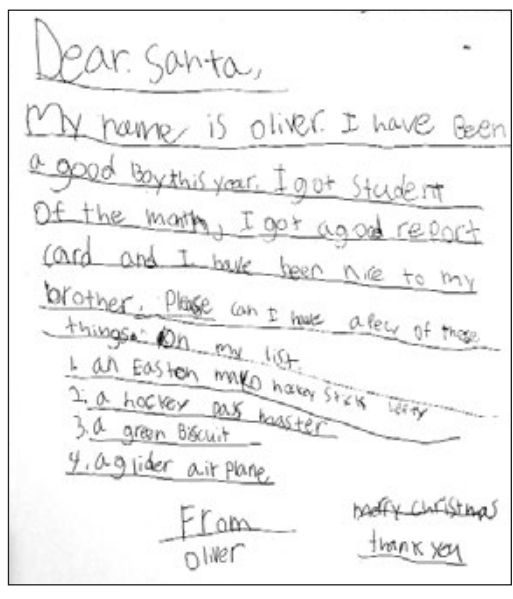 Dear. Santa,
My name is oliver. I have Been
a good Boy this year. I got Student
Of the month, I got a good report
card and I have been nice to my
brother. Please can I have a few of these
things. On my list.
1. an Easton mako hockey stick
2. a hockey
3. a green Biscuit
4. a glider air plane
From
oliver
merry christmas
thank you